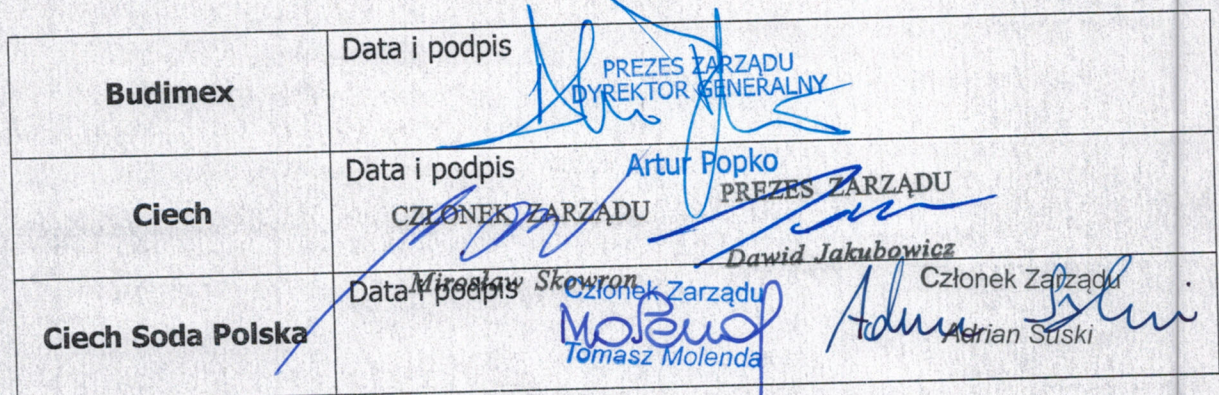 Budimex
Data i podpis
PREZES ZARZĄDU
DYREKTOR GENERALNY
Artur Popko
Ciech
Data i podpis
CZŁONEK ZARZĄDU
Mirosław Skowron
PREZES ZARZĄDU
Dawid Jakubowicz
Ciech Soda Polska
Data i podpis
Członek Zarządu
Molenda
Tomasz Molenda
Członek Zarządu
Adrian Suski